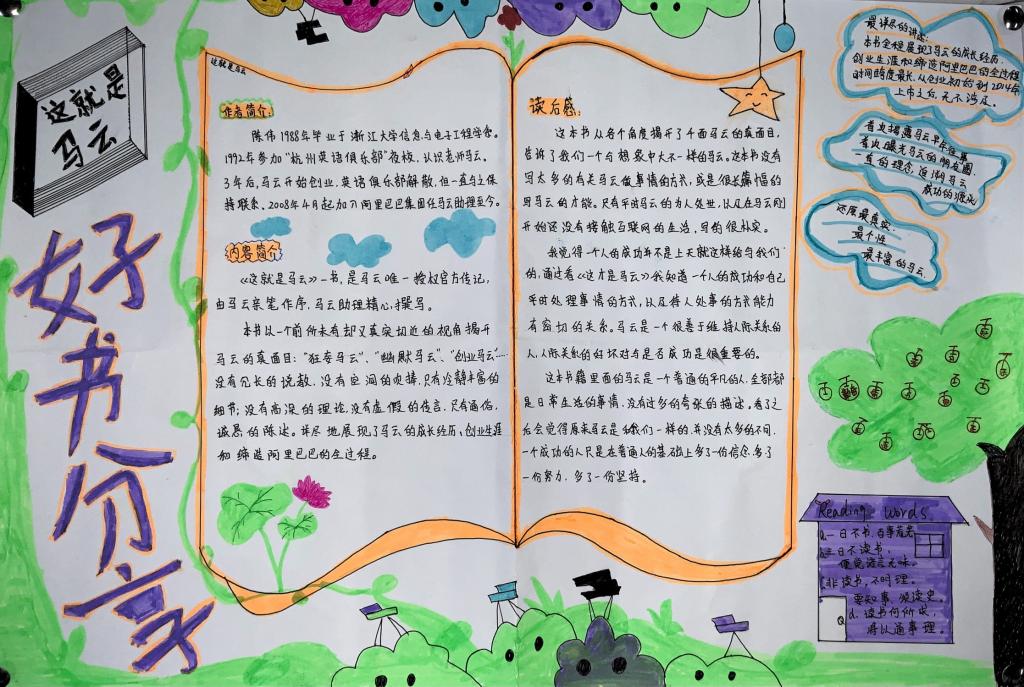 这就是
马云
好书分享
这就是马云
作者简介:
陈伟1988年毕业于浙江大学信息与电子工程学系。
1992年参加“杭州英语俱乐部”夜校,认识老师马云。
3年后,马云开始创业,英语俱乐部解散,但一直与之保
持联系。2008年4月起加入阿里巴巴集团任马云助理至今。
内容简介:
《这就是马云》一书,是马云唯一授权官方传记,
由马云亲笔作序,马云助理精心撰写。
本书以一个前所未有却又真实切近的视角揭开
马云的真面目:“狂专马云”、“幽默马云”、“创业马云”……
没有冗长的说教,没有空洞的吹捧,只有冷静丰富的
细节;没有高深的理论,没有虚假的传言,只有通俗,
诚恳的陈述。详尽地展现了马云的成长经历、创业生涯
和缔造阿里巴巴的全过程。
读后感:
这本书从各个角度揭开了千面马云的真面目,
告诉了我们一个与想象中大不一样的马云。这本书没有
写太多的有关马云做事情的方式,或是很长篇幅的
写马云的才能。只有平时马云的为人处世,以及在马云刚
开始还没有接触互联网的生活,写的很朴实。
我觉得一个人的成功并不是上天就这样给与我们
的,通过看《这才是马云》我知道一个人的成功和自己
平时处理事情的方式,以及待人处事的方式能力
有密切的关系。马云是一个很善于维持人际关系的
人,人际关系的好坏对与是否成功是很重要的。
这本书籍里面的马云是一个普通的平凡的人,全部都
是日常生活的事情,没有过多的夸张的描述。看了之
后会觉得原来马云是和我们一样的,并没有太多的不同,
一个成功的人只是在普通人的基础上多了一份信念,多了
一份努力,多了一份坚持。
最详尽的讲述:
本书全程展现马云的成长经历,
创业生涯和缔造阿里巴巴的全过程
时间跨度最长,从创业初始到2014年
上市之后,无不涉及。
首次披露马云早年往事
首次曝光马云的朋友圈,
一直的理念,追溯马云
成功的源泉
还原最真实,
最个性
最丰富的马云,
Reading Words
a.一日不书,百事荒芜
三日不读书,
便觉语言无味。
c.非读书,不明理。
要知事,须读史。
d.读书何所求,
将以通事理。